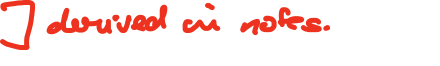 ] derived in notes.